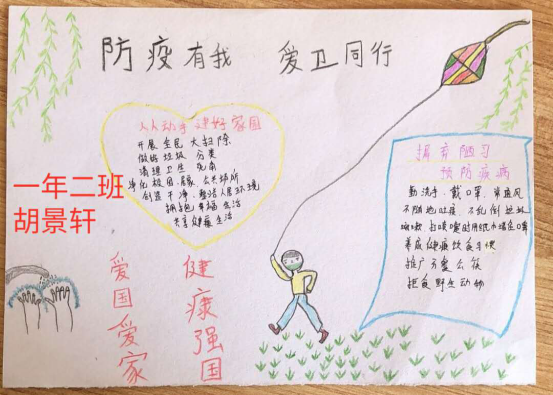 防疫有我 爱卫同行
人人动手 建好家园
开展全民 大扫除
做好垃圾 分类
清理卫生 死角
净化校园、居家、公共场所
创造干净、整洁人居环境
拥抱幸福生活
共享健康生活
摒弃陋习
预防疾病
勤洗手、戴口罩、常通风
不随地吐痰、不乱倒垃圾
咳嗽、打喷嚏时用纸巾捂住口鼻
养成健康饮食习惯
推广分餐公筷
拒食野生动物
一年二班
胡景轩
爱国爱家
健康强国